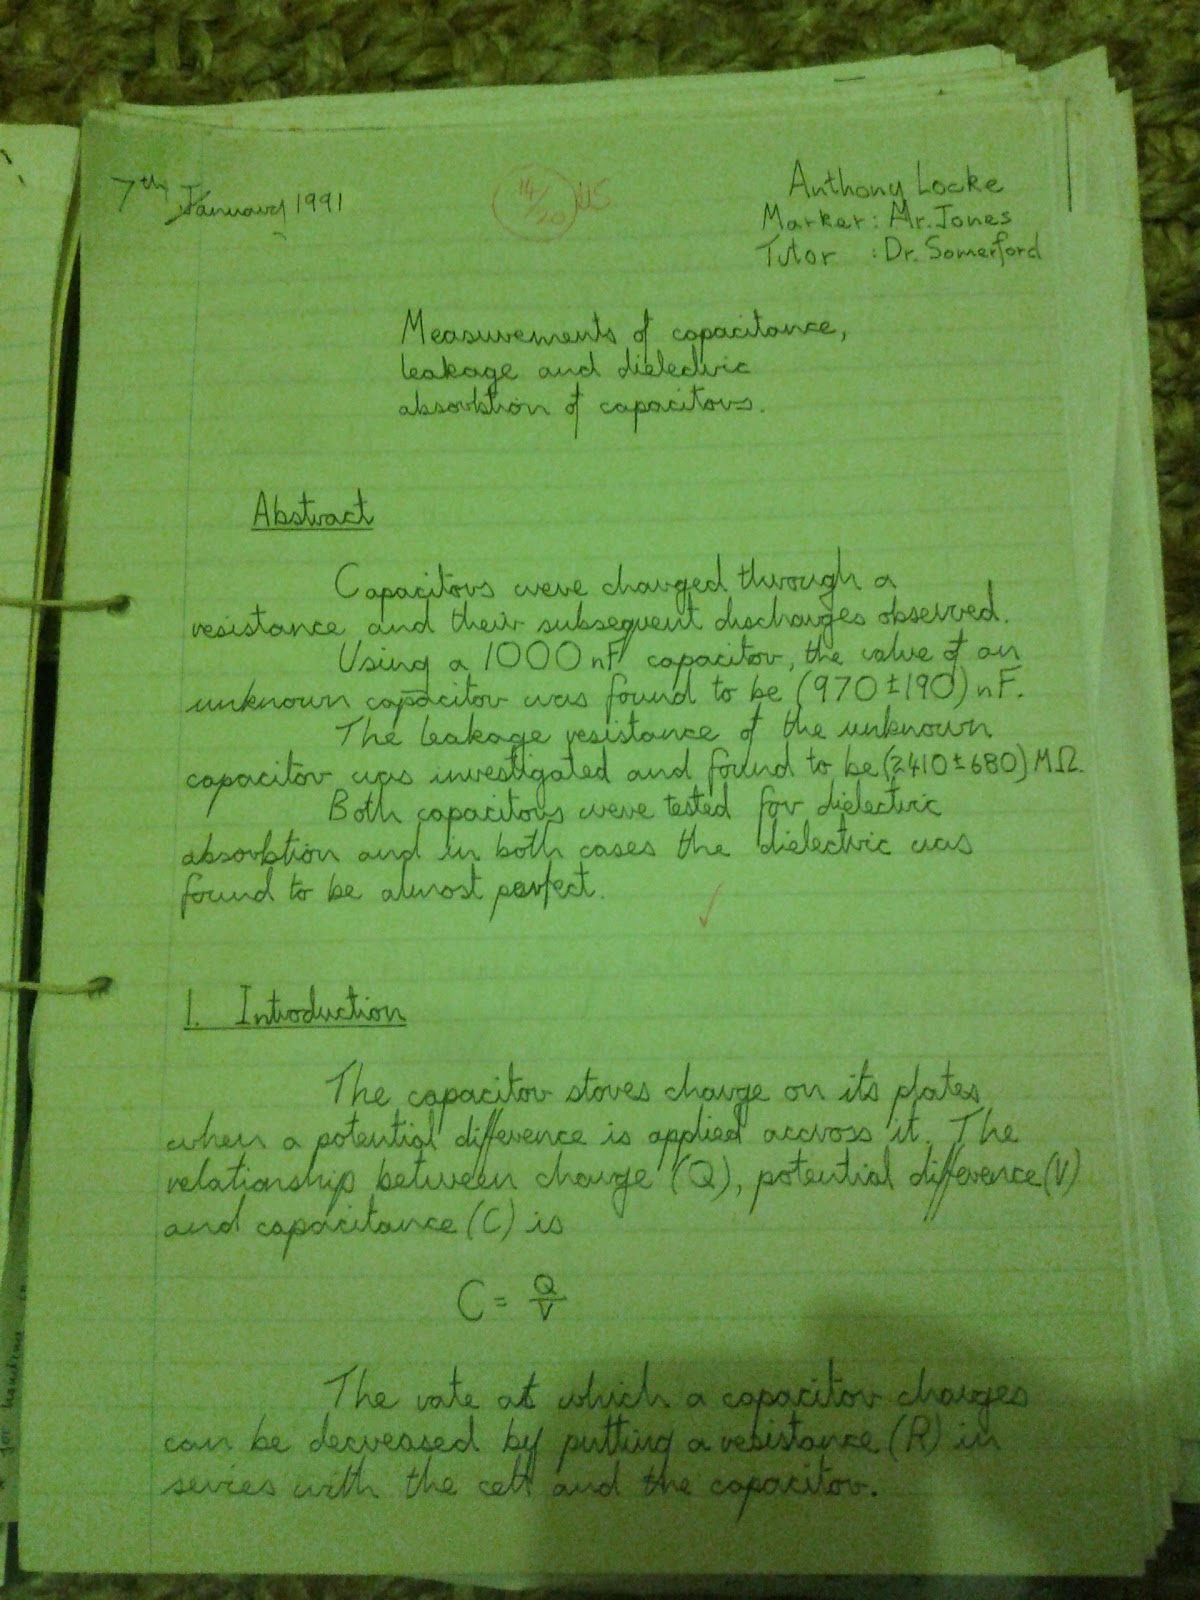 7th January 1991
14/20
Anthony Locke
Marker: Mr. Jones
Tutor : Dr. Somerford
Measurements of capacitance,
leakage and dielectric
absorbtion of capacitors.
Abstract
Capacitors were charged through a
resistance and their subsequent discharges observed.
Using a 1000 nF capacitor, the value of an
unknown capacitor was found to be (970±190) nF.
The leakage resistance of the unknown
capacitor was investigated and found to be (2410±680) MΩ.
Both capacitors were tested for dielectric
absorbtion and in both cases the dielectric was
found to be almost perfect.
1. Introduction
The capacitor stores charge on its plates
when a potential difference is applied accross it. The
relationship between charge (Q), potential difference (V)
and capacitance (C) is
C = Q/V
The rate at which a capacitor charges
can be decreased by putting a resistance (R) in
series with the cell and the capacitor.